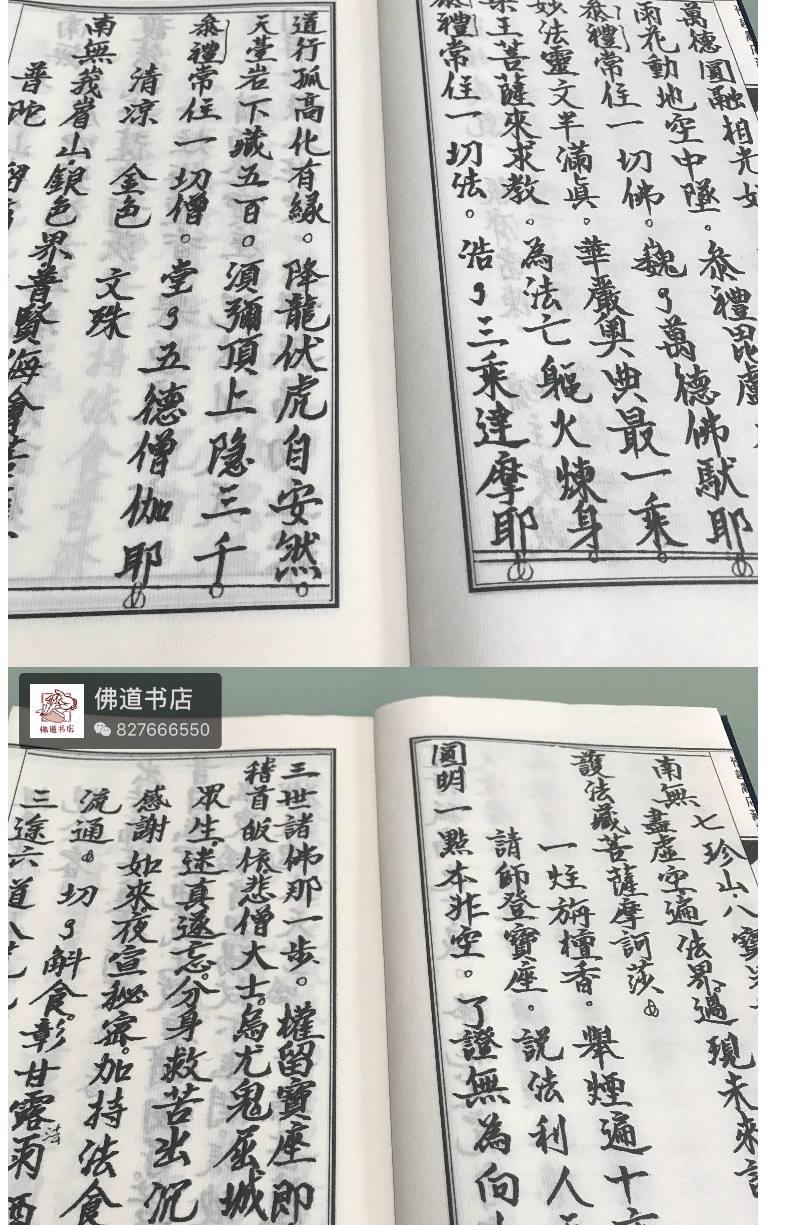 萬德圓融相光好
雨花動地空中墜。叅禮毘盧
叅禮常住一切佛。巍々萬德佛馱耶
妙法靈文半滿眞。華嚴奥典最一乘
藥王菩薩來求教。為法亡軀火煉身
叅禮常住一切法。浩々三乘達摩耶
道行孤高化有緣。降龍伏虎自安然
天臺岩下藏五百。須彌頂上隐三千
叅禮常住一切僧。堂々五德僧伽耶
清凉 金色 文殊
南無莪眉山銀色界普賢海會
普陀
佛道书店
佛道书店
827666550
七珍山八寶
南無盡虛空遍法界過現未來
護法藏菩薩摩訶莎
一炷旃檀香。舉煙遍十方
請師登寶座。說法利人
圓明一點本非空。了證無為向
三世諸佛那一步。權留寶座即
稽首皈依悲僧大士。為尤鬼屈城
眾生迷真逐忘。分身救苦出沉
感謝如來夜宣秘密。加持法食
流通。切々斛食。彰甘露法雨
三途六道